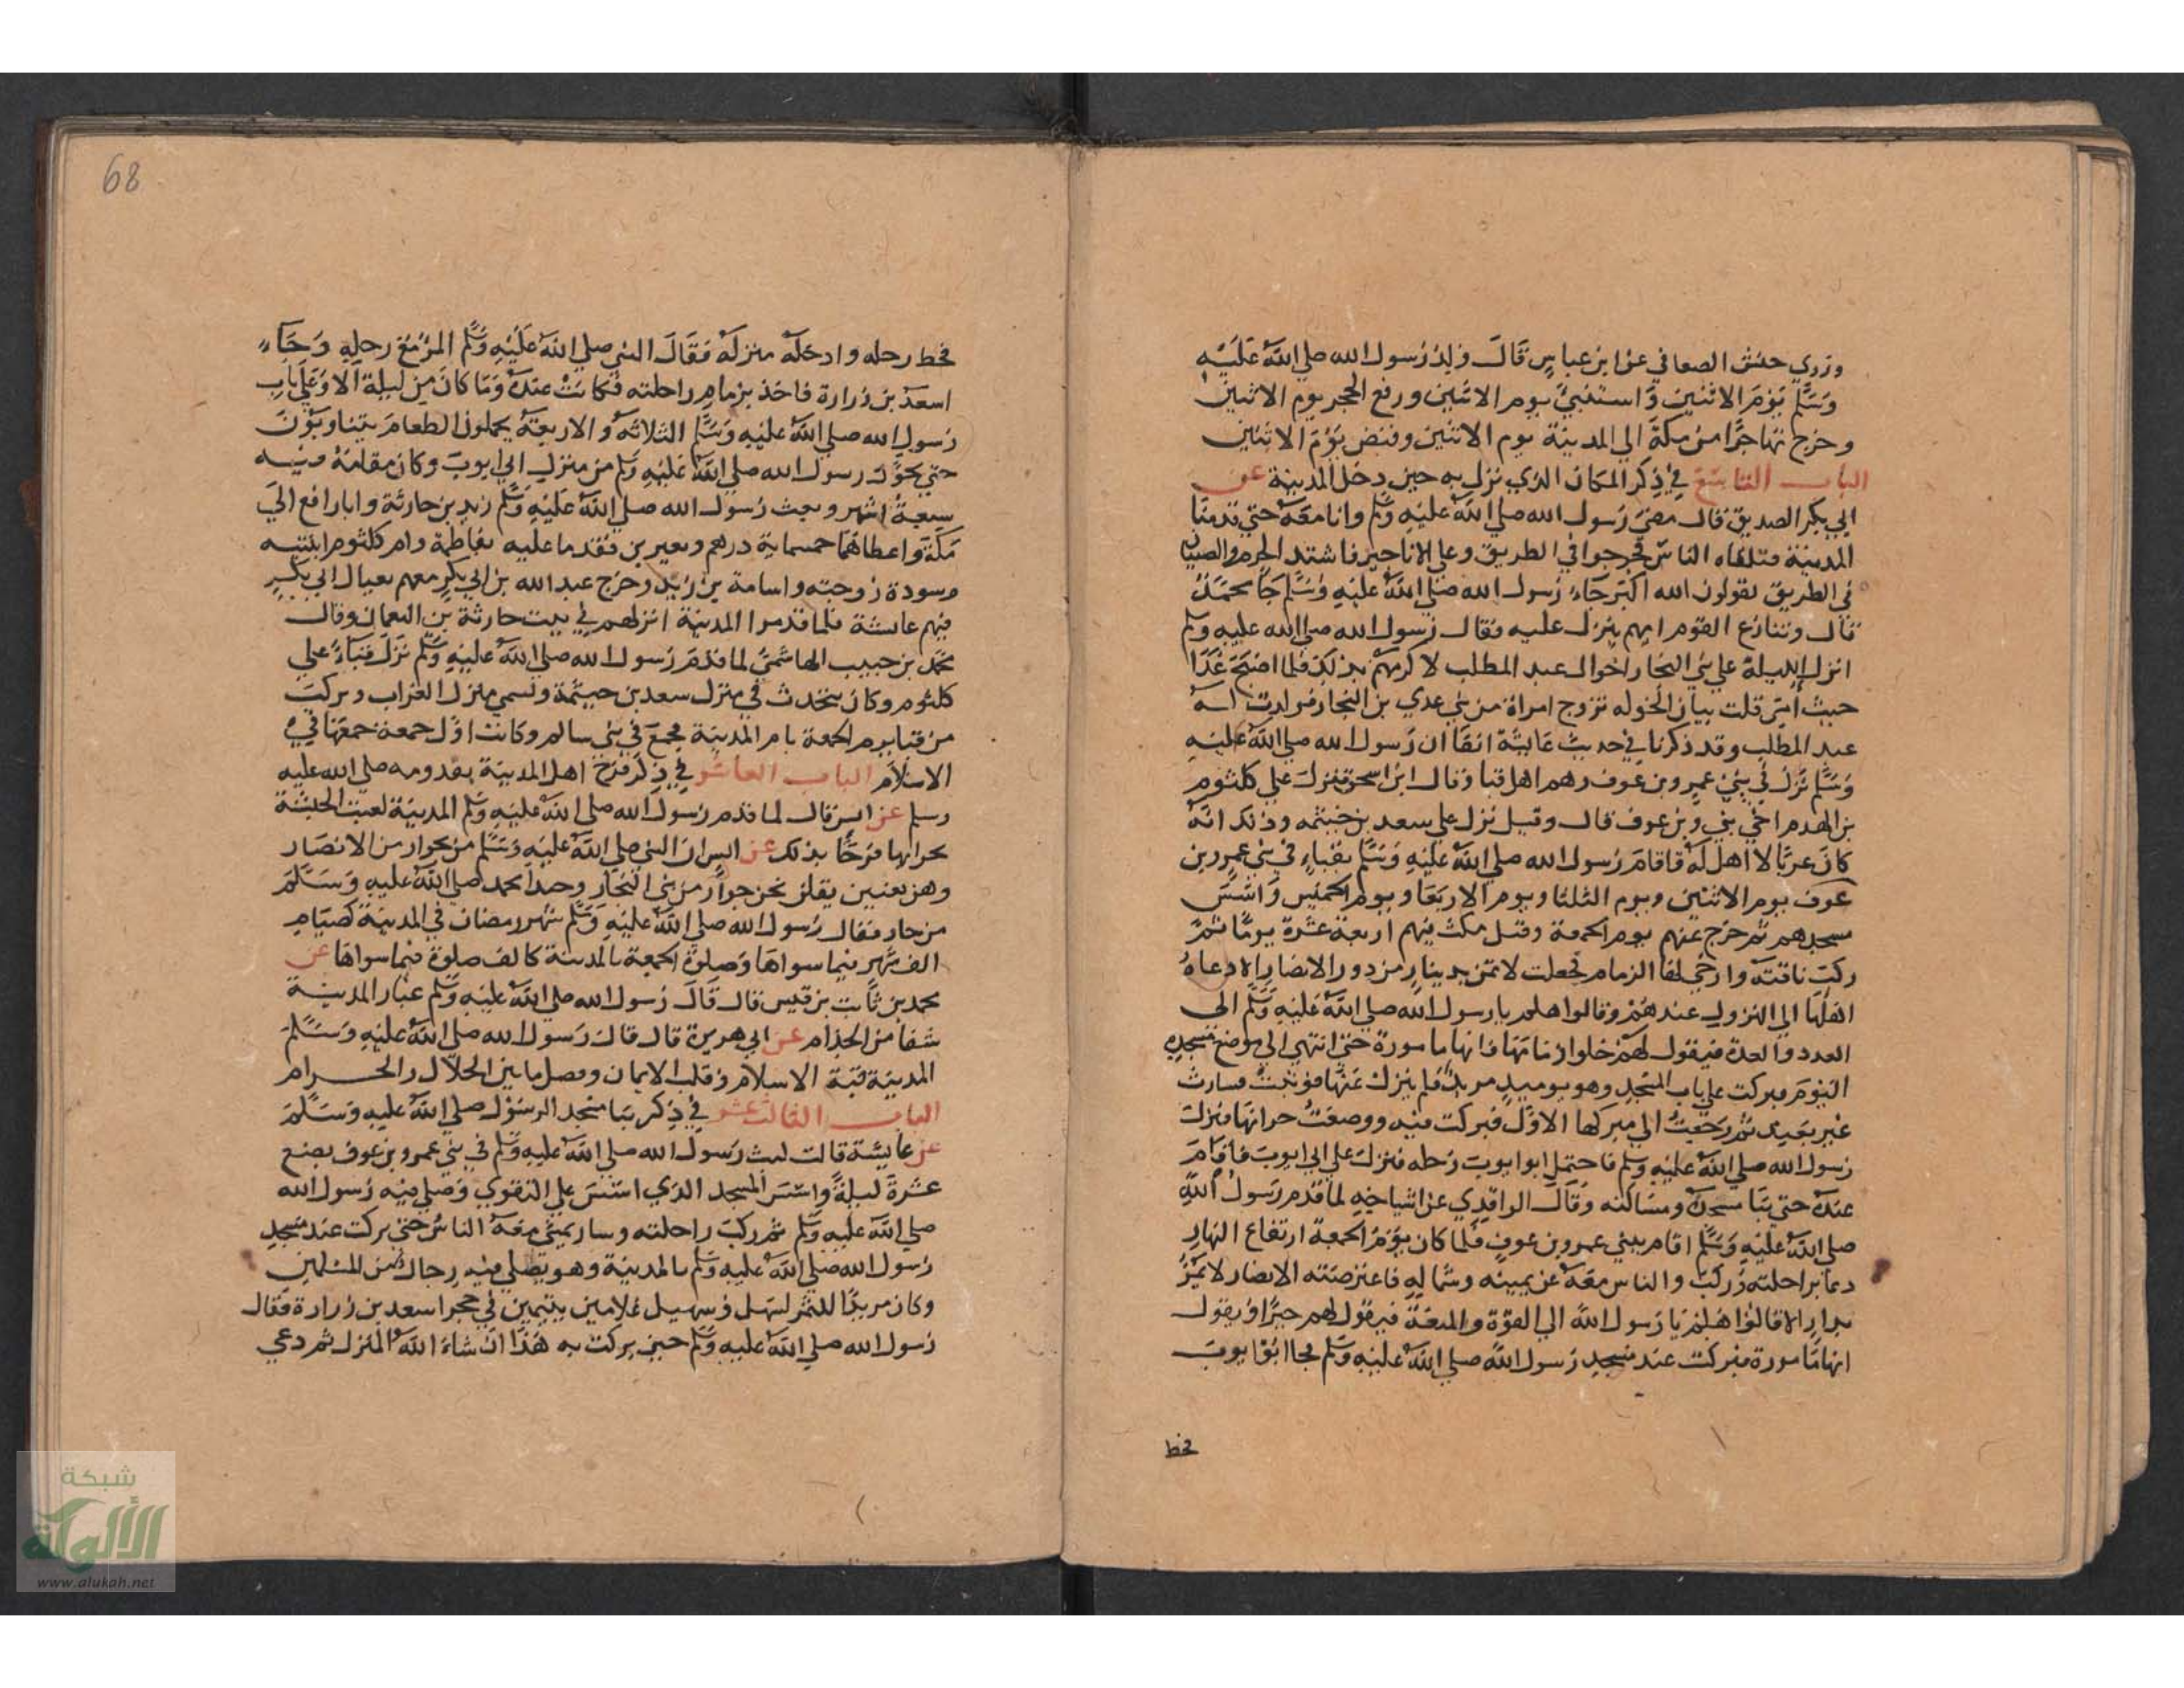 وروي حنش الصعاني عن ابن عباس قال ولد رسول الله صلي الله عليه
وسلم يوم الاثنين واستنبئ يوم الاثنين ورفع الحجر يوم الاثنين
وخرج مهاجرا من مكة الي المدينة يوم الاثنين وقبض يوم الاثنين
الباب التاسع في ذكر المكان الذي نزل به حين دخل المدينة عن
ابي بكر الصديق قال مضي رسول الله صلي الله عليه وسلم وانا معه حتي قدمنا
المدينة فتلقاه الناس فخرجوا في الطريق وعلي الاناجير فاشتد الخدم والصبيان
في الطريق يقولون الله اكبر جاء رسول الله صلي الله عليه وسلم جا محمد
قال وتنازع القوم ايهم ينزل عليه فقال رسول الله صلي الله عليه وسلم
انزل الليلة علي بني النجار اخوال عبد المطلب لاكرمهم بذلك فلما اصبح غدا
حيث امر قلت بيان الخوله تزوج امراة من بني عدي بن النجار فولدت له
عبد المطلب وقد ذكرنا في حديث عايشة انفا ان رسول الله صلي الله عليه
وسلم نزل في بني عمرو بن عوف وهم اهل قبا وقال ابن اسحق فنزل علي كلثوم
بن الهدم اخي بني وبن عوف قال وقيل نزل علي سعد بن خيثمه وذلك انه
كان عربا لا اهل له فاقام رسول الله صلي الله عليه وسلم بقباء في بني عمرو بن
عوف يوم الاثنين ويوم الثلثا ويوم الاربعا ويوم الخميس واسس
مسجدهم ثم خرج عنهم يوم الجمعة وقيل مكث فيهم اربعة عشرة يوما ثم
ركب ناقته وارخي لها الزمام فجعلت لا تمر بدينار من دور الانصار الا دعاه
اهلها الي النزول عندهم وقالوا هلم يا رسول الله صلي الله عليه وسلم الي
العدد والعدة فيقول لهم خلوا زمامها فانها مامورة حتي انتهي الي موضع مسجده
اليوم فبركت علي باب المسجد وهو يوميد مربد فلم ينزل عنها فوثبت فسارت
غير بعيد ثم رجعت الي مبركها الاول فبركت فيه ووضعت جرانها فنزل
رسول الله صلي الله عليه وسلم فاحتمل ابو ايوب رحله فنزل علي ابي ايوب فاقام
عنده حتي بنا مسجده ومساكنه وقال الواقدي عن اشياخه لما قدم رسول الله
صلي الله عليه وسلم اقام ببني عمرو بن عوف فلما كان يوم الجمعة ارتفاع النهار
دعا براحلته وركب والناس معه عن يمينه وشماله فاعترضته الانصار لا يمر
بدار الا قالوا هلم يا رسول الله الي القوة والمنعة فيقول لهم خيرا ويقول
انها مامورة فبركت عند مسجد رسول الله صلي الله عليه وسلم فجا ابو ايوب
فحط
68
فحط رحله وادخله منزله فقال النبي صلي الله عليه وسلم المرء مع رحله وجاء
اسعد بن زرارة فاخذ بزمام راحلته فكانت عنده وما كان من ليلة الا وعلي باب
رسول الله صلي الله عليه وسلم الثلاثه والاربعه يحملون الطعام يتناوبون
حتي تحول رسول الله صلي الله عليه وسلم من منزل ابي ايوب وكان مقامه فيه
سبعة اشهر وبعث رسول الله صلي الله عليه وسلم زيد بن حارثة وابا رافع الي
مكة واعطاهما خمسماية درهم وبعيرين فقدما عليه بفاطمة وام كلثوم ابنتيه
وسودة زوجته واسامة بن زيد وخرج عبد الله بن ابي بكر معهم بعيال ابي بكر
فيهم عائشة فلما قدموا المدينة انزلهم في بيت حارثة بن النعمان وقال
محمد بن حبيب الهاشمي لما قدم رسول الله صلي الله عليه وسلم نزل قباء علي
كلثوم وكان يتحدث في منزل سعد بن خيثمة وتسمي منزل العزاب وركب
من قبا يوم الجمعة يام المدينة فجمع في بني سالم وكانت اول جمعة جمعها في
الاسلام الباب العاشر في ذكر فرح اهل المدينة بقدومه صلي الله عليه
وسلم عن انس قال لما قدم رسول الله صلي الله عليه وسلم المدينة لعبت الحبشة
بحرابها فرحا بذلك عن انس ان النبي صلي الله عليه وسلم مر بجوار من الانصار
وهن يغنين يقلن نحن جوار من بني النجار وحبذا محمد صلي الله عليه وسلم
من جار فقال رسول الله صلي الله عليه وسلم شهر رمضان في المدينة كصيام
الف شهر فيما سواها وصلوة الجمعة بالمدينة كالف صلوة فيما سواها عن
محمد بن ثابت بن قيس قال قال رسول الله صلي الله عليه وسلم غبار المدينة
شفا من الجذام عن ابي هريرة قال قال رسول الله صلي الله عليه وسلم
المدينة قبة الاسلام وقلب الايمان وفصل ما بين الحلال والحرام
الباب الثالث عشر في ذكر بنا مسجد الرسول صلي الله عليه وسلم
عن عايشة قالت لبث رسول الله صلي الله عليه وسلم في بني عمرو بن عوف بضع
عشرة ليلة واسس المسجد الذي اسس علي التقوي وصلي فيه رسول الله
صلي الله عليه وسلم ثم ركب راحلته وسار يمشي معه الناس حتي بركت عند مسجد
رسول الله صلي الله عليه وسلم بالمدينة وهو يصلي فيه رجال من المسلمين
وكان مربدا للتمر لسهل وسهيل غلامين يتيمين في حجر اسعد بن زرارة فقال
رسول الله صلي الله عليه وسلم حين بركت به هذا ان شاء الله المنزل ثم دعي
شبكة
الألوكة
www.alukah.net